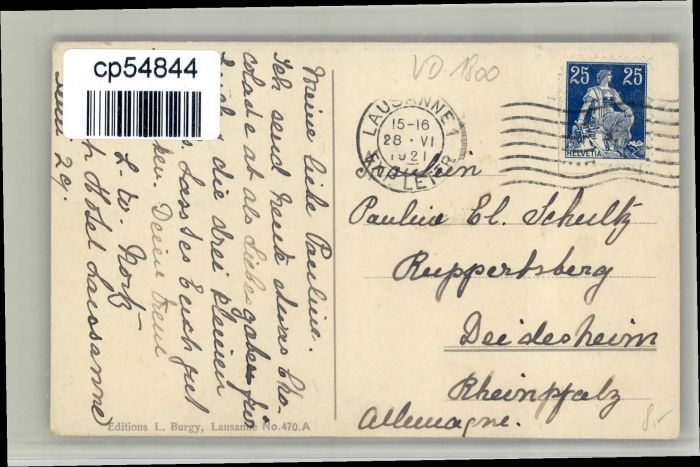 cp54844
VD 1800
LAUSANNE 1
15-16
28 · VI
1921
EXP. LETTR
25 25
HELVETIA
Meine liebe Paulina.
Ich send heute etwas Cho-
colade ab als Liebesgaben für
die drei kleinen
Lasst es Euch gut
Deine treue
L. W. Nortz
Hotel Lausanne
29.
Fräulein
Paulina El. Schultz
Ruppertsberg
Deidesheim
Rheinpfalz
Allemagne.
8,-
Editions L. Burgy, Lausanne No. 470. A